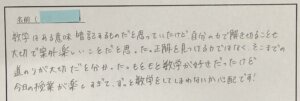 名前(
数学はある意味 暗記するものだと思っていたけど自分の力で解き切ることも
大切で案外楽しいことだと思った。正解を見つけるだけではなく、そこまでの
道のりが大切だと分かった。もともと数学が好きだったけど
今日の授業が楽しすぎて、ずっと数学をしてしまわないか心配です!